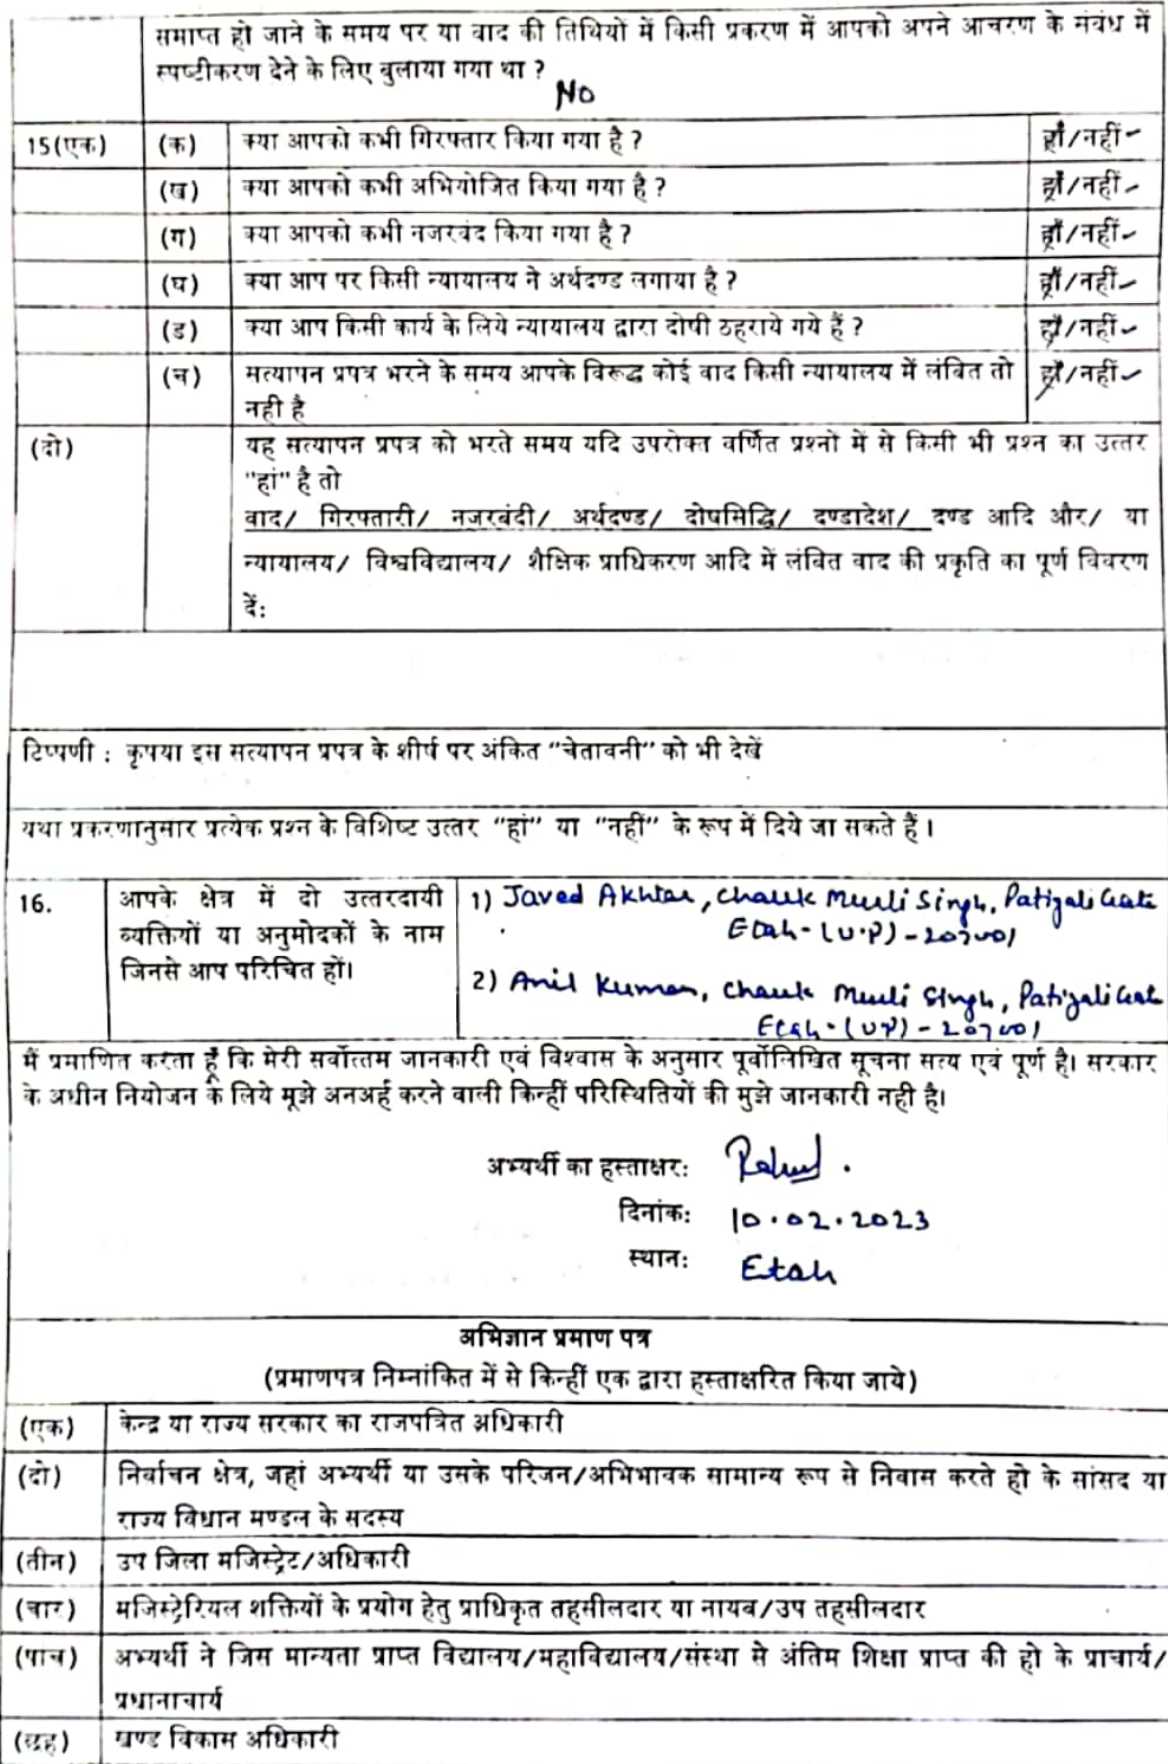 समाप्त हो जाने के समय पर या वाद की तिथियों में किसी प्रकरण में आपको अपने आचरण के संबंध में
स्पष्टीकरण देने के लिए बुलाया गया था ?
NO
15(एक) (क) क्या आपको कभी गिरफ्तार किया गया है ? हाँ/नहीं
(ख) क्या आपको कभी अभियोजित किया गया है ? हाँ/नहीं
(ग) क्या आपको कभी नजरबंद किया गया है ? हाँ/नहीं
(घ) क्या आप पर किसी न्यायालय ने अर्थदण्ड लगाया है ? हाँ/नहीं
(ड) क्या आप किसी कार्य के लिये न्यायालय द्वारा दोषी ठहराये गये हैं ? हाँ/नहीं
(च) सत्यापन प्रपत्र भरने के समय आपके विरूद्ध कोई वाद किसी न्यायालय में लंबित तो हाँ/नहीं
नही है
(दो) यह सत्यापन प्रपत्र को भरते समय यदि उपरोक्त वर्णित प्रश्नो में से किसी भी प्रश्न का उत्तर
"हां" है तो
वाद/ गिरफ्तारी/ नजरबंदी/ अर्थदण्ड/ दोषसिद्धि/ दण्डादेश/ दण्ड आदि और/ या
न्यायालय/ विश्वविद्यालय/ शैक्षिक प्राधिकरण आदि में लंबित वाद की प्रकृति का पूर्ण विवरण
दें:
टिप्पणी : कृपया इस सत्यापन प्रपत्र के शीर्ष पर अंकित "चेतावनी" को भी देखें
यथा प्रकरणानुसार प्रत्येक प्रश्न के विशिष्ट उत्तर "हां" या "नहीं" के रूप में दिये जा सकते हैं ।
16. आपके क्षेत्र में दो उत्तरदायी 1) Javed Akhtar, Chauk Singh, Patiyali Gate
व्यक्तियों या अनुमोदकों के नाम Etah-(U.P)-207001
जिनसे आप परिचित हों। 2) Anil Kumar, Chauk Singh, Patiyali Gate
Etah-(UP)-207001
मैं प्रमाणित करता हूँ कि मेरी सर्वोत्तम जानकारी एवं विश्वास के अनुसार पूर्वोलिखित सूचना सत्य एवं पूर्ण है। सरकार
के अधीन नियोजन के लिये मूझे अनअर्ह करने वाली किन्हीं परिस्थितियों की मुझे जानकारी नही है।
अभ्यर्थी का हस्ताक्षर:
दिनांक: 10.02.2023
स्थान: Etah
अभिज्ञान प्रमाण पत्र
(प्रमाणपत्र निम्नांकित में से किन्हीं एक द्वारा हस्ताक्षरित किया जाये)
(एक) केन्द्र या राज्य सरकार का राजपत्रित अधिकारी
(दो) निर्वाचन क्षेत्र, जहां अभ्यर्थी या उसके परिजन/अभिभावक सामान्य रूप से निवास करते हो के सांसद या
राज्य विधान मण्डल के सदस्य
(तीन) उप जिला मजिस्ट्रेट/अधिकारी
(चार) मजिस्ट्रेरियल शक्तियों के प्रयोग हेतु प्राधिकृत तहसीलदार या नायब/उप तहसीलदार
(पांच) अभ्यर्थी ने जिस मान्यता प्राप्त विद्यालय/महाविद्यालय/संस्था से अंतिम शिक्षा प्राप्त की हो के प्राचार्य/
प्रधानाचार्य
(छह) खण्ड विकास अधिकारी